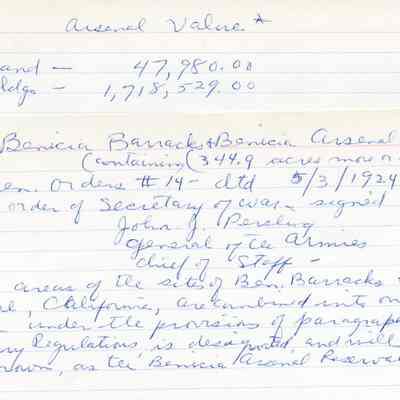 Arsenal Value *
and - 47,980.00
ldgs - 1,718,529.00
Benicia Barracks & Benicia Arsenal
(containing (344.9 acres more o
en. Orders # 14 - dtd 5/3/1924
order of Secretary of War - signed
John J. Pershing
General of the Armies
Chief of Staff -
areas of the sites of Ben. Barracks
, California, are combined into on
under the provisions of paragrap
ry Regulations, is designated, and will
nown, as the Benicia Arsenal Reserva